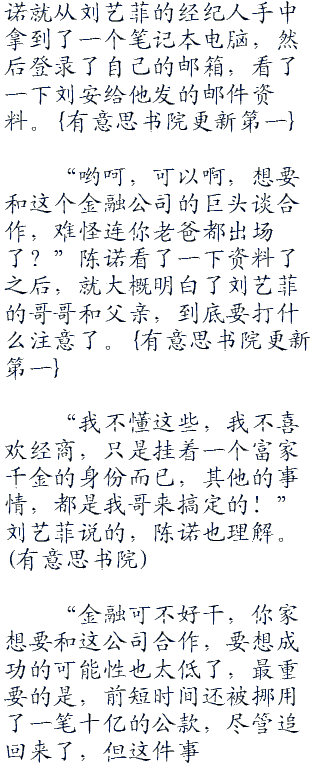 诺就从刘艺菲的经纪人手中
拿到了一个笔记本电脑，然
后登录了自己的邮箱，看了
一下刘安给他发的邮件资
料。{有意思书院更新第一}
“哟呵，可以啊，想要
和这个金融公司的巨头谈合
作，难怪连你老爸都出场
了？”陈诺看了一下资料了
之后，就大概明白了刘艺菲
的哥哥和父亲，到底要打什
么注意了。{有意思书院更新
第一}
“我不懂这些，我不喜
欢经商，只是挂着一个富家
千金的身份而已，其他的事
情，都是我哥来搞定的！”
刘艺菲说的，陈诺也理解。
(有意思书院)
“金融可不好干，你家
想要和这公司合作，要想成
功的可能性也太低了，最重
要的是，前短时间还被挪用
了一笔十亿的公款，尽管追
回来了，但这件事